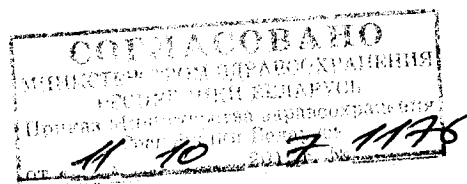 СОГЛАСОВАНО
МИНИСТЕРСТВОМ ЗДРАВООХРАНЕНИЯ
РЕСПУБЛИКИ БЕЛАРУСЬ
Приказ Министерства здравоохранения
Республики Беларусь
от 11 10 2017 № 1176